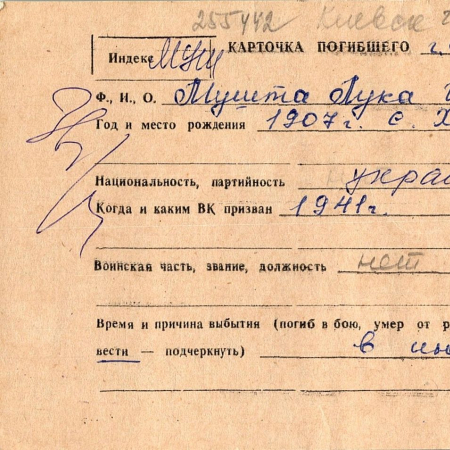 255442 Киевск
Индекс МУШ КАРТОЧКА ПОГИБШЕГО г.
Ф., И., О. Мушта Лука
Год и место рождения 1907 г. с. Х
Национальность, партийность украс
Когда и каким ВК призван 1941 г.
Воинская часть, звание, должность нет
Время и причина выбытия (погиб в бою, умер от р
вести — подчеркнуть) в